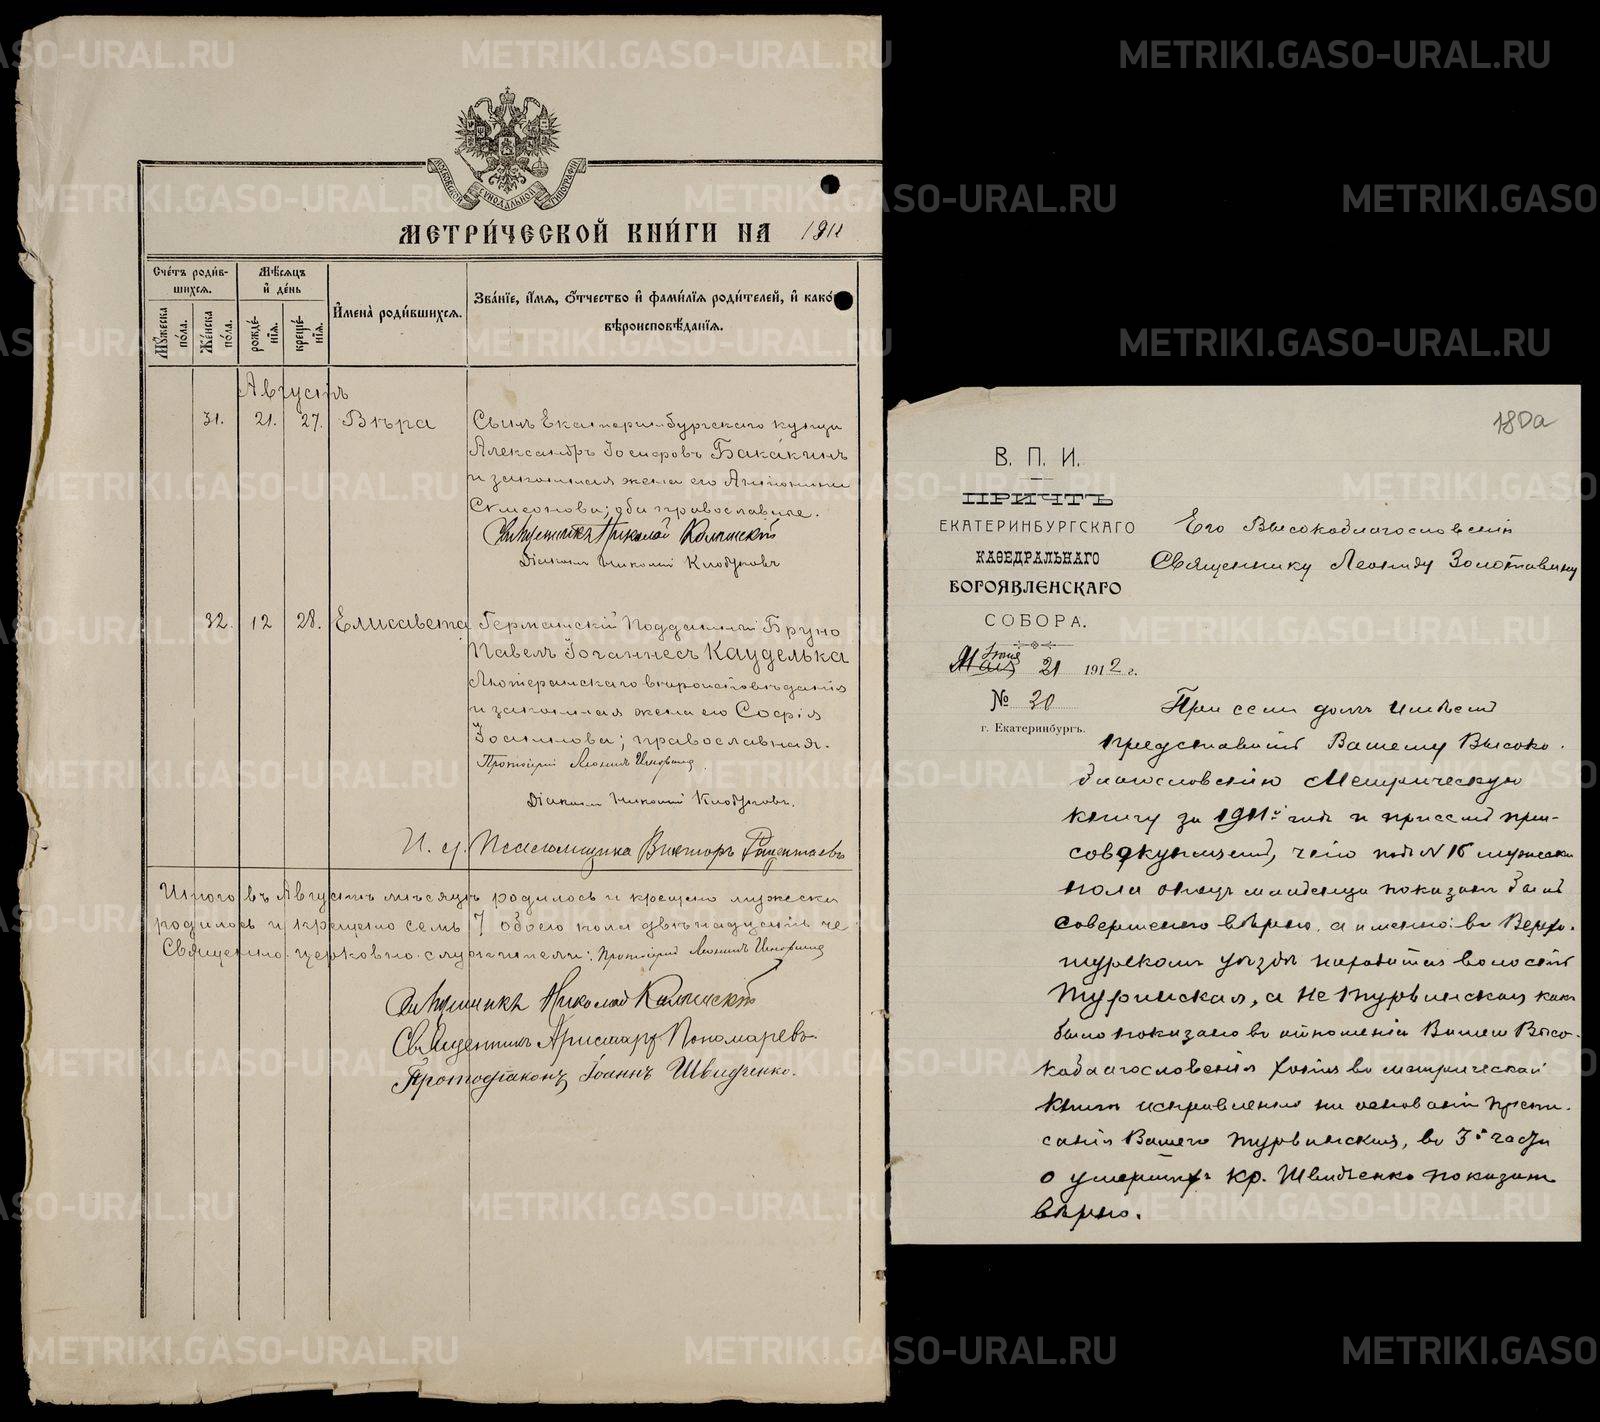 МОСКОВСКОЙ СѴНОДАЛЬНОЙ ТИПОГРАФІИ
МЕТРИ́ЧЕСКОЙ КНИ́ГИ НА 1911
Сче́тъ роди́в-
шихся.
Мѣ́сяцъ
и҆ де́нь
Мꙋ́жеска
по́ла.
Же́нска
по́ла.
рожде́-
нїя.
креще́-
нїя.
И҆мена̀ роди́вшихся.
Зва́нїе, и҆́мя, ѻ҆́тчество и҆ фами́лїя роди́телей, и҆ како́
вѣроисповѣ́данїя.
Августъ
31. 21. 27. Вѣра
Сынъ Екатеринбургскаго купца
Александръ Іосифовъ Бакакинъ
и законная жена его Антонина
Симеонова; оба православные.
Священникъ Николай
Діаконъ Николай
32. 12 28. Елисавета
Германскій подданный Бруно
Павелъ Іоганнесъ Кауделька
Лютеранскаго вѣроисповѣданія
и законная жена его Софія
Зосимова; православная.
Протоіерей Леонидъ Игноратовъ
Діаконъ Николай
И. д. Псаломщика Викторъ
Итого въ Августѣ мѣсяцѣ родилось и крещено мужеска
родилось и крещено семь 7 обоего пола двѣнадцать че
Священно-церковно-служители: Протоіерей Леонидъ
Священникъ Николай
Священникъ Аристархъ Пономаревъ
Протодіаконъ Іоаннъ Швидченко.
180а
В. П. И.
ПРИЧТЪ
ЕКАТЕРИНБУРГСКАГО
КАѲЕДРАЛЬНАГО
БОГОЯВЛЕНСКАГО
СОБОРА.
Мая Іюня 21 1912 г.
№ 30
г. Екатеринбургъ.
Его Высокоблагословенію
Священнику Леониду Золотавину
При семъ долгъ имѣемъ
представить Вашему Высоко-
благословенію Метрическую
книгу за 1911й годъ и причтъ при-
совокупляетъ, что подъ № 16 мужеска
пола отецъ младенца показанъ былъ
совершенно вѣрно, а именно: въ Верхо-
турскомъ уѣздѣ находится волость
Туринская, а не Турвинская какъ
было показано въ отношеніи Вашего Высо-
коблагословенія хотя въ метрической
книгѣ исправлено на основаніи предпи-
санія Вашего Турвинская, въ 3й части
о умершихъ кр. Швидченко показанъ
вѣрно.